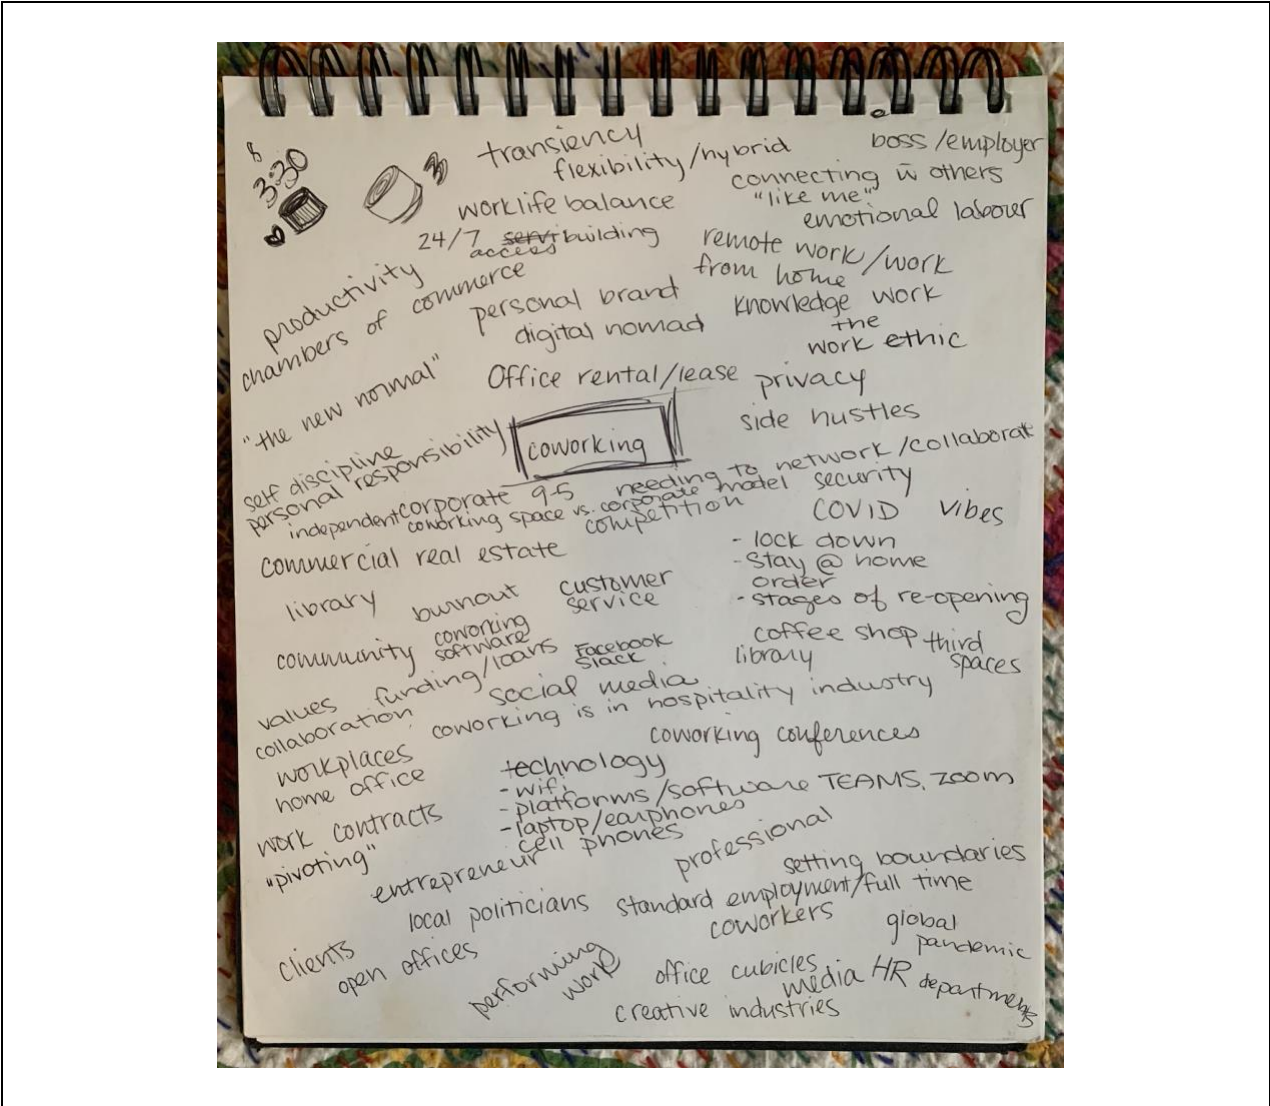 3:30
transiency
flexibility/hybrid
boss/employer
connecting w̄ others
"like me"
worklife balance
emotional labour
24/7 building
access
remote work/work
from home
productivity
chambers of commerce
personal brand
knowledge work
digital nomad
the
work ethic
"the new normal"
Office rental/lease
privacy
side hustles
coworking
self discipline
personal responsibility
needing to network/collaborat
independent
corporate 9-5
coworking space vs. corporate model
competition
security
COVID
vibes
commercial real estate
- lock down
- stay @ home
order
- stages of re-opening
library
burnout
customer
service
community
coworking
software
Facebook
slack
coffee shop
third
spaces
library
values
funding/loans
social media
collaboration
coworking is in hospitality industry
workplaces
coworking conferences
home office
technology
- wifi
- platforms/software TEAMS, ZOOM
- laptop/earphones
cell phones
work contracts
"pivoting"
entrepreneur
professional
setting boundaries
local politicians
standard employment/full time
coworkers
global
pandemic
clients
open offices
performing
work
office cubicles
media
HR departments
creative industries